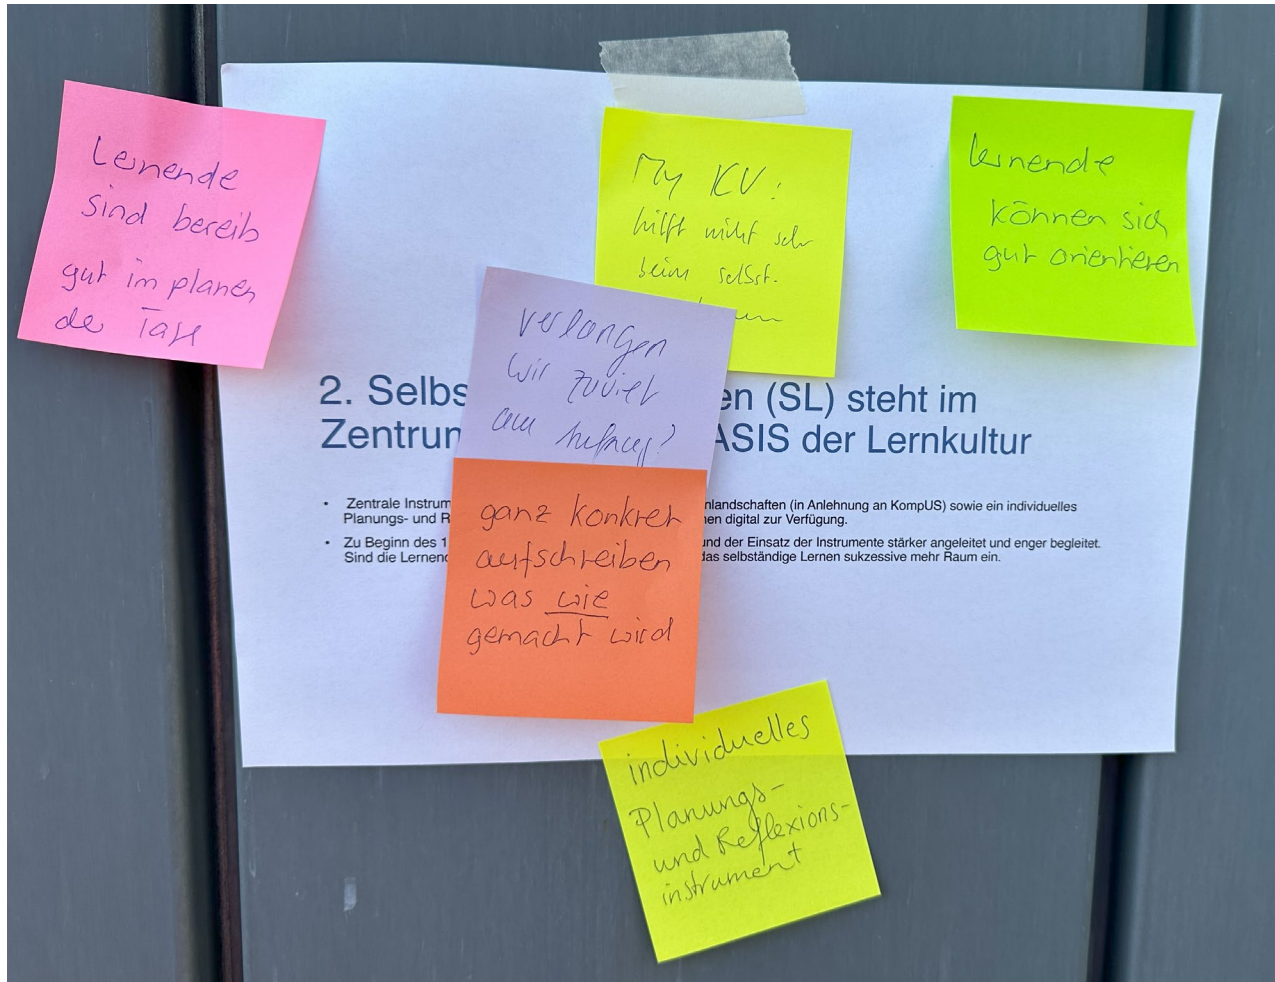 Lernende
sind bereits
gut im planen
der Tage
My KV:
hilft nicht sehr
beim selbst.
lernende
können sich
gut orientieren
verlangen
wir zuviel
am Anfang?
2. Selbs
en (SL) steht im
Zentrum
ASIS der Lernkultur
Zentrale Instrum
nlandschaften (in Anlehnung an KompUS) sowie ein individuelles
Planungs- und R
nen digital zur Verfügung.
Zu Beginn des 1
und der Einsatz der Instrumente stärker angeleitet und enger begleitet.
Sind die Lernend
das selbständige Lernen sukzessive mehr Raum ein.
ganz konkret
aufschreiben
was wie
gemacht wird
individuelles
Planungs-
und Reflexions-
instrument